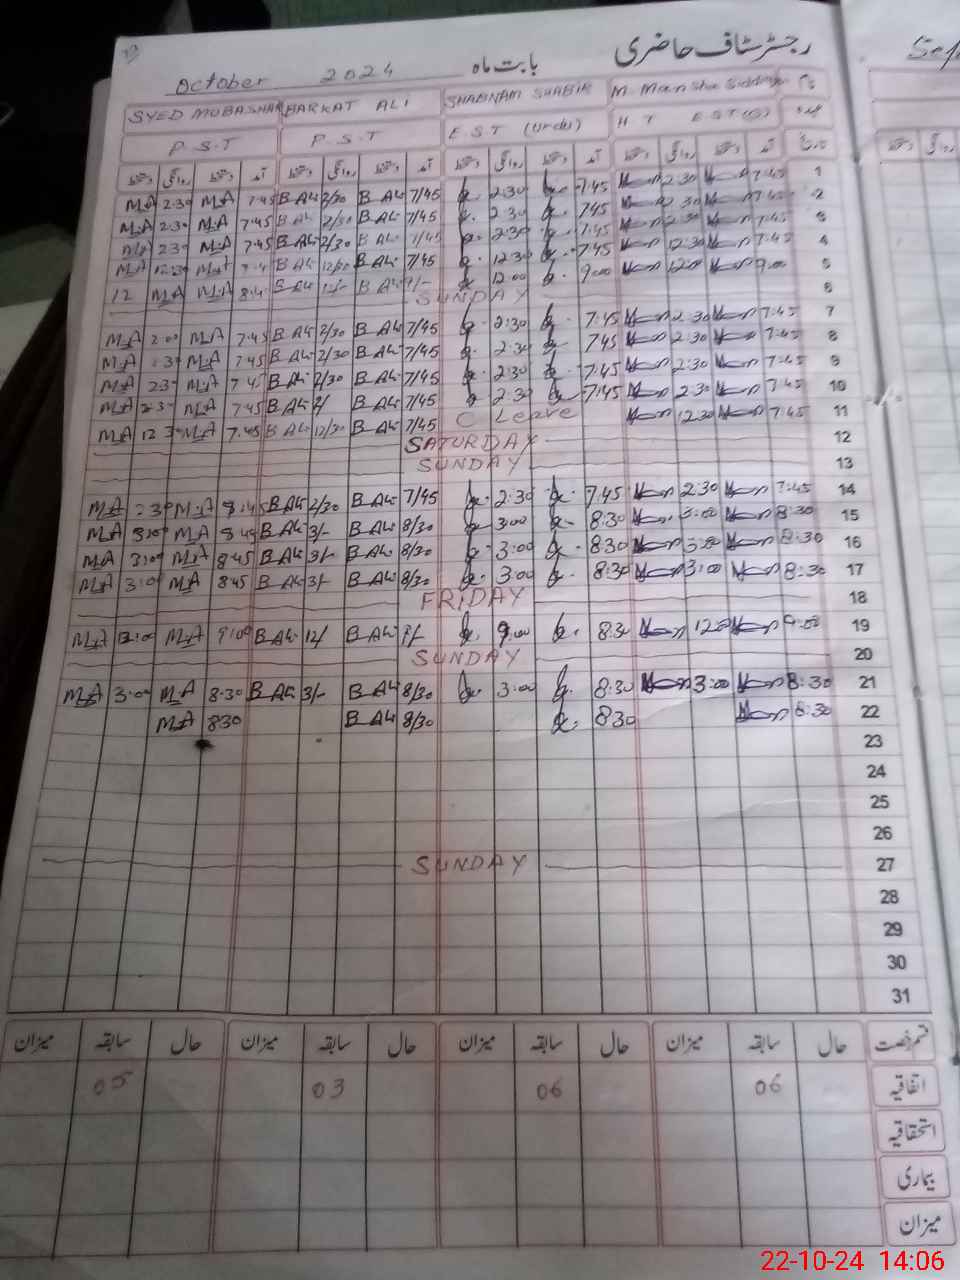 رجسٹر سٹاف حاضری
بابت ماہ October 2024
SYED MUBASHAR BARKAT ALI SHABNAM SHABIR M. Mansha Siddique نام
P.S.T P.S.T E.S.T (Urdu) H T E.S.T(G) عہدہ
دستخط روانگی دستخط آمد دستخط روانگی دستخط آمد دستخط روانگی دستخط آمد دستخط روانگی دستخط آمد تاریخ
M.A 2:30 M.A 7:45 B.Ali 2/30 B.Ali 7/45 2:30 7:45 2:30 7:45 1
M.A 2:30 M.A 7:45 B.Ali 2/30 B.Ali 7/45 2:30 745 2:30 7:45 2
M.A 2:30 M.A 7:45 B.Ali 2/30 B.Ali 7/45 2:30 7:45 2:30 7:45 3
M.A 12:30 M.A B.Ali 12/30 B.Ali 7/45 12:30 7:45 12:30 7:45 4
12 M.A M.A B.Ali B.Ali 9/- 12:00 9:00 12:00 9:00 5
SUNDAY 6
M.A M.A 7:45 B.Ali 2/30 B.Ali 7/45 2:30 7:45 2:30 7:45 7
M.A M.A 7:45 B.Ali 2/30 B.Ali 7/45 2:30 745 2:30 7:45 8
M.A 230 M.A 7:45 B.Ali 2/30 B.Ali 7/45 2:30 7:45 2:30 7:45 9
M.A M.A 7:45 B.Ali 2/ B.Ali 7/45 2:30 7:45 2:30 7:45 10
M.A 12 3 M.A 7:45 B.Ali 12/30 B.Ali 7/45 C Leave 12:30 7:45 11
SATURDAY 12
SUNDAY 13
M.A M.A 8:45 B.Ali 2/30 B.Ali 7/45 2:30 7:45 2:30 7:45 14
M.A 3:00 M.A 8:45 B.Ali 3/- B.Ali 8/30 3:00 8:30 3:00 8:30 15
M.A 3:00 M.A 8:45 B.Ali 3/- B.Ali 8/30 3:00 8:30 3:00 8:30 16
M.A 3:00 M.A 845 B.Ali 3/- B.Ali 8/30 3:00 8:30 3:00 8:30 17
FRIDAY 18
M.A 12:00 M.A 9:00 B.Ali 12/ B.Ali 9/- 9:00 8:30 12:00 9:00 19
SUNDAY 20
M.A 3:00 M.A 8:30 B.Ali 3/- B.Ali 8/30 3:00 8:30 3:00 8:30 21
M.A 830 B.Ali 8/30 830 8:30 22
23
24
25
26
SUNDAY 27
28
29
30
31
میزان سابقہ حال میزان سابقہ حال میزان سابقہ حال میزان سابقہ حال قسم رخصت
05 03 06 06 اتفاقیہ
استحقاقیہ
بیماری
میزان
22-10-24 14:06